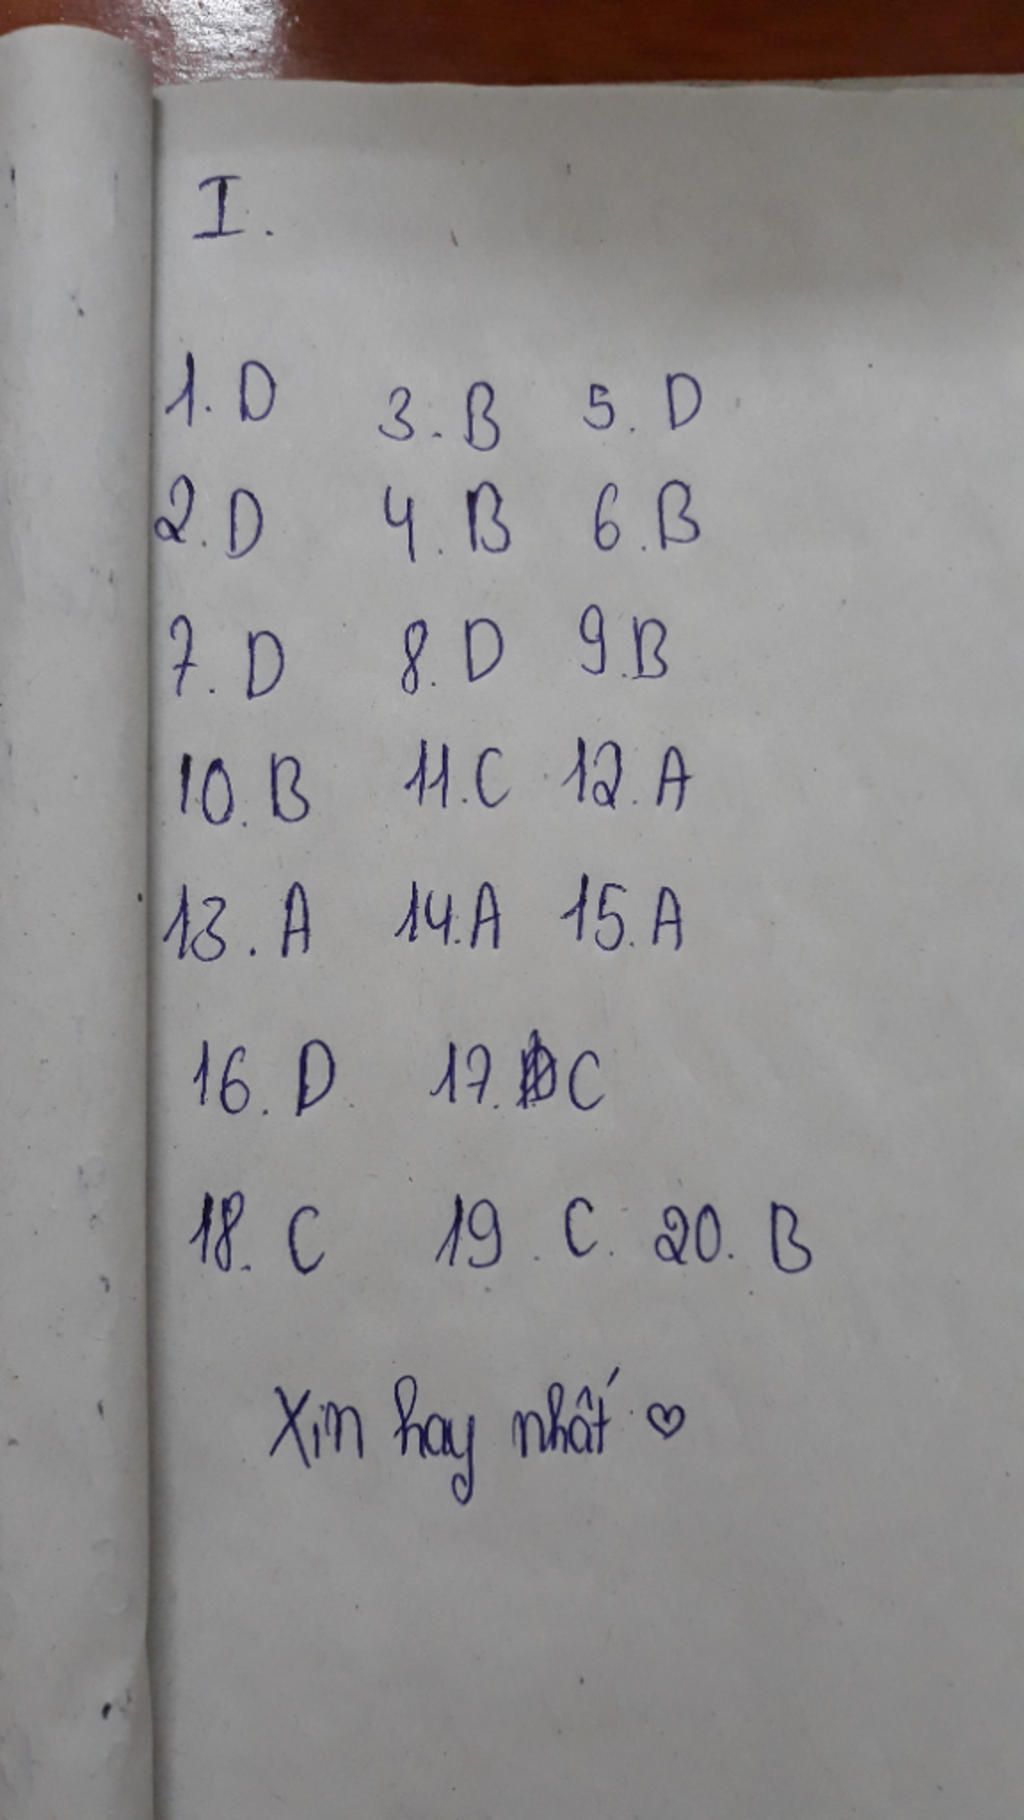 I.
1. D 3. B 5. D
2. D 4. B 6. B
7. D 8. D 9. B
10. B 11. C 12. A
13. A 14. A 15. A
16. D 17. C
18. C 19. C. 20. B
Xin hay nhất ♡